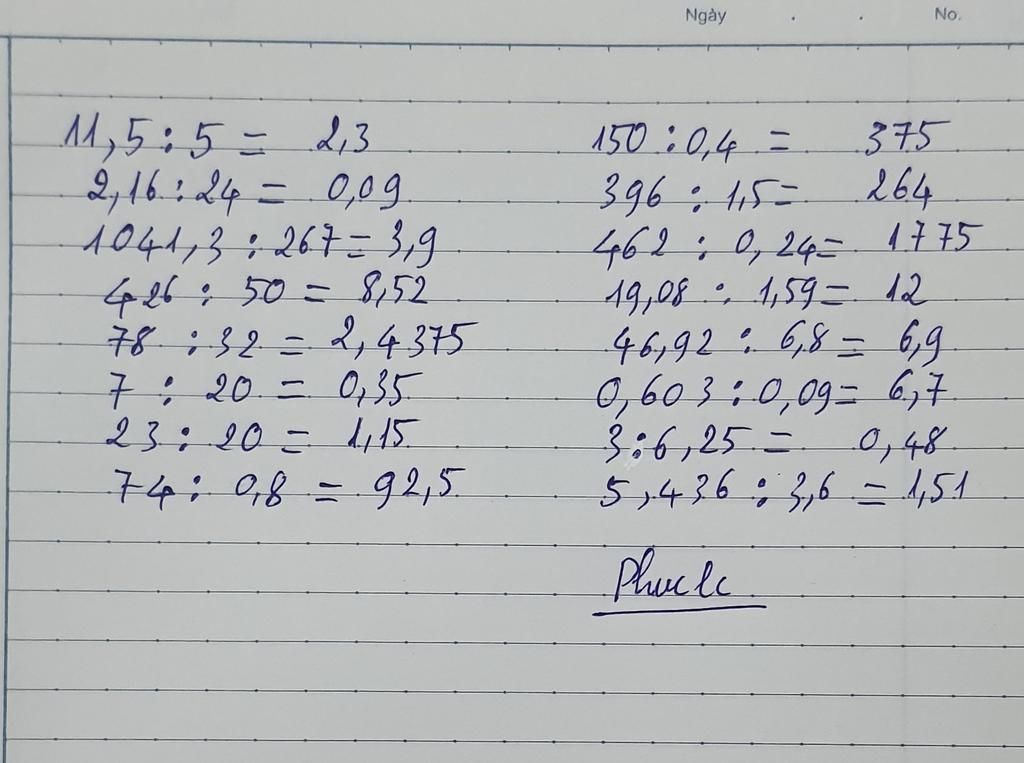 Ngày . . No.
11,5 : 5 = 2,3
2,16 : 24 = 0,09
1041,3 : 267 = 3,9
426 : 50 = 8,52
78 : 32 = 2,4375
7 : 20 = 0,35
23 : 20 = 1,15
74 : 0,8 = 92,5
150 : 0,4 = 375
396 : 1,5 = 264
462 : 0,24 = 1775
19,08 : 1,59 = 12
46,92 : 6,8 = 6,9
0,603 : 0,09 = 6,7
3 : 6,25 = 0,48
5,436 : 3,6 = 1,51